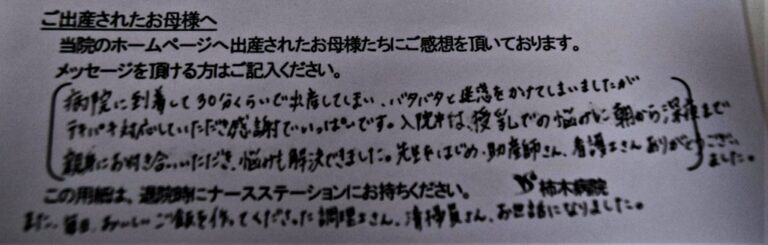 ご出産されたお母様へ
当院のホームページへ出産されたお母様たちにご感想を頂いております。
メッセージを頂ける方はご記入ください。
病院に到着して30分くらいで出産してしまい、バタバタと迷惑をかけてしまいましたが
テキパキ対応していただき感謝でいっぱいです。入院中は、授乳での悩みに朝から深夜まで
親身にお付き合いいただき、悩みも解決できました。先生をはじめ、助産師さん、看護士さんありがとうござい
ました。
この用紙は、退院時にナースステーションにお持ちください。 柿木病院
また、毎日、おいしいご飯を作ってくださった調理士さん、清掃員さん、お世話になりました。